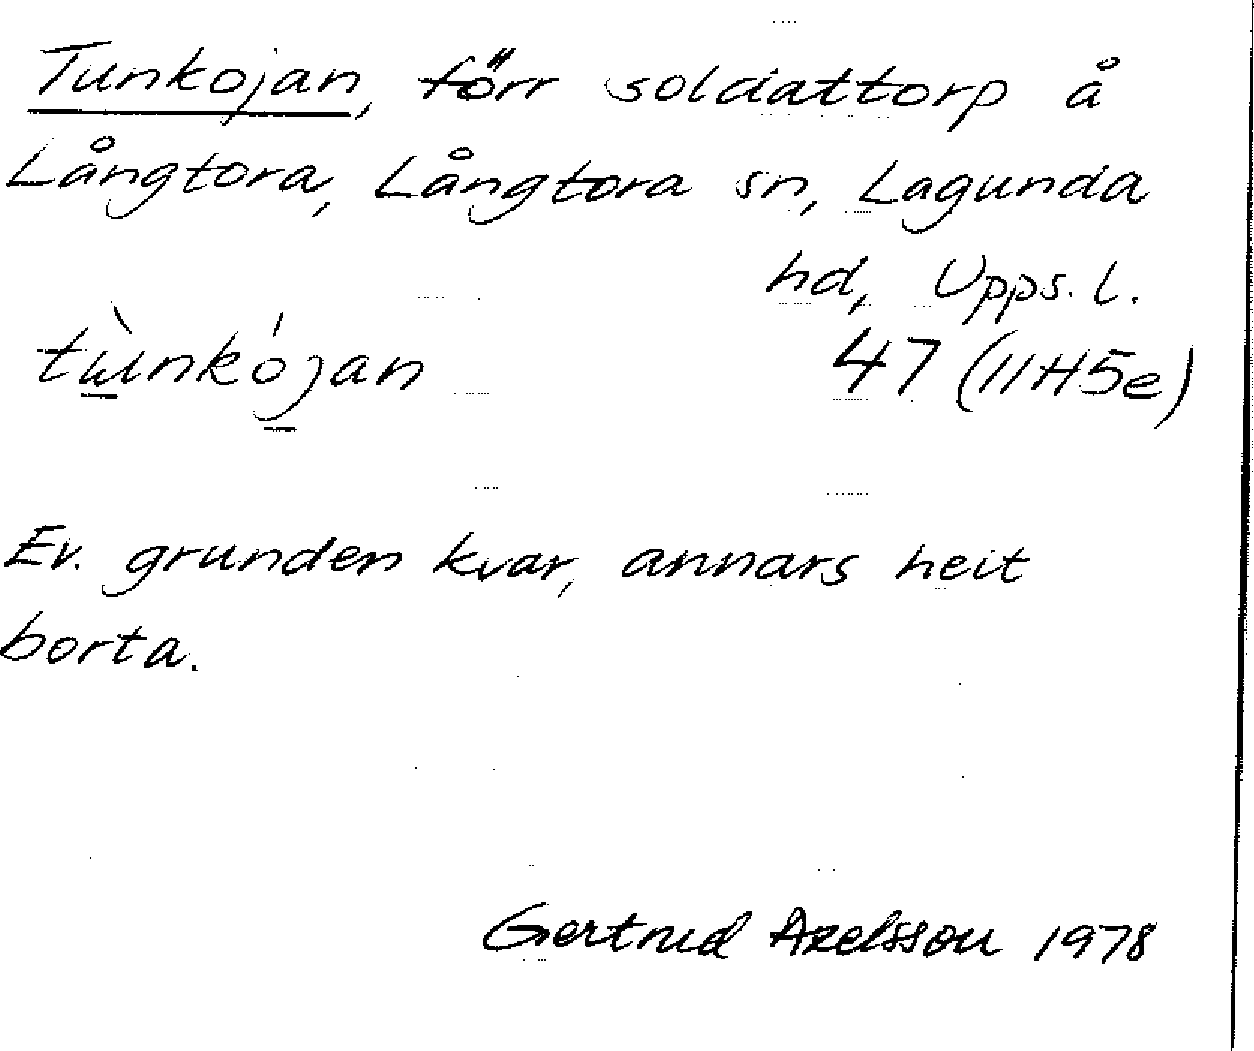 Tunkojan, förr soldattorp å
Långtora, Långtora sn, Lagunda
hd, Upps. l.
tù̱nkó̱jan 47 (11H5e)
Ev. grunden kvar, annars helt
borta.
Gertrud Axelsson 1978